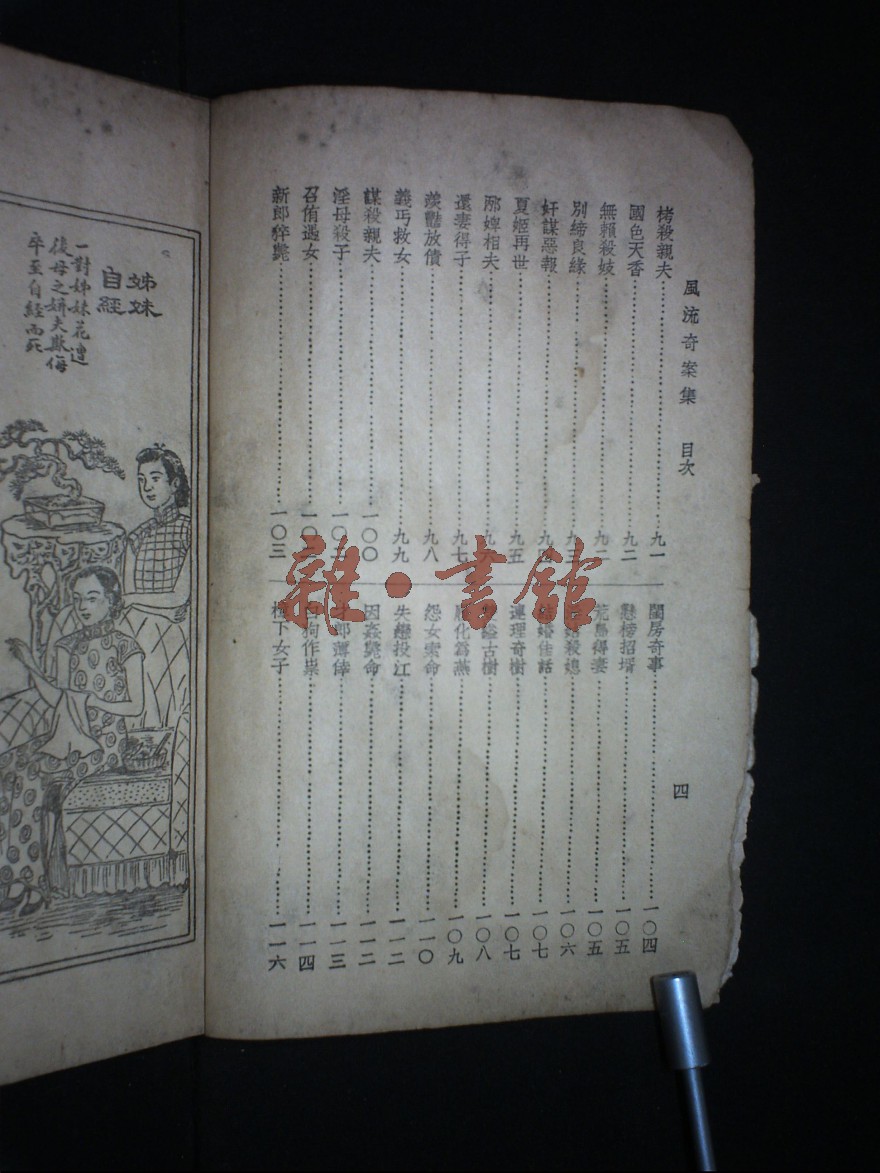 風流奇案集 目次
四
栲殺親夫 九一
國色天香 九二
無賴殺妓 九二
別締良緣 九三
奸謀惡報 九四
夏姬再世 九五
邢婢相夫
還妻得子 九七
羨豔放債 九八
義丐救女 九九
謀殺親夫 一〇〇
淫母殺子 一〇二
召侑遇女
新郎猝斃 一〇三
閨房奇事 一〇四
懸榜招壻 一〇五
荒島得妻 一〇五
殺媳 一〇六
婚佳話 一〇七
連理奇樹 一〇七
古樹 一〇八
化為燕 一〇九
怨女索命 一一〇
失戀投江 一一二
因姦斃命 一一二
才郎薄倖 一一三
白狗作祟 一一四
下女子 一一六
姊妹
自經
一對姊妹花遭
後母之姘夫欺侮
卒至自經而死
雜·書館